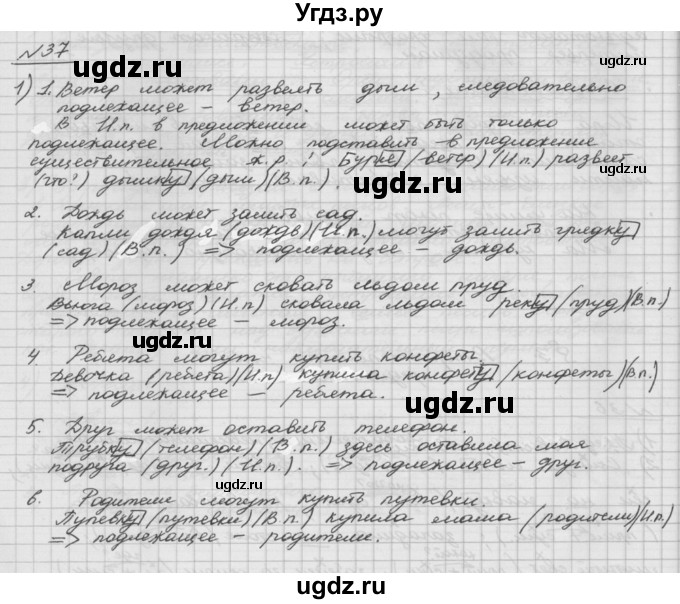 Угдз.ру
№37
1) 1. Ветер может развеять дым, следовательно
подлежащее – ветер.
В И.п. в предложении может быть только
подлежащее. Можно подставить в предложение
существительное ж.р.: (ветер) (И.п.) развеет
(что?) дымку (дым) (В.п.).
2. Дождь может залить сад.
Капли дождя (дождь) (И.п.) могут залить грядку
(сад) (В.п.) => подлежащее – дождь.
3. Мороз может сковать льдом пруд.
Вьюга (мороз) (И.п) сковала льдом реку (пруд) (В.п.)
=> подлежащее – мороз.
4. Ребята могут купить конфеты.
Девочка (ребята) (И.п) купила конфету (конфеты) (В.п.)
=> подлежащее – ребята.
5. Друг может оставить телефон.
Трубку (телефон) (В.п.) здесь оставила моя
подруга (друг.) (И.п.). => подлежащее – друг.
6. Родители могут купить путевки.
Путевку (путевки) (В.п.) купила мама (родители) (И.п.)
=> подлежащее – родители.
ugdz.ru
ugdz.ru
ugdz.ru
ugdz.ru
ugdz.ru
ugdz.ru
ugdz.ru
ugdz.ru
ugdz.ru
ugdz.ru
ugdz.ru
ugdz.ru
ugdz.ru